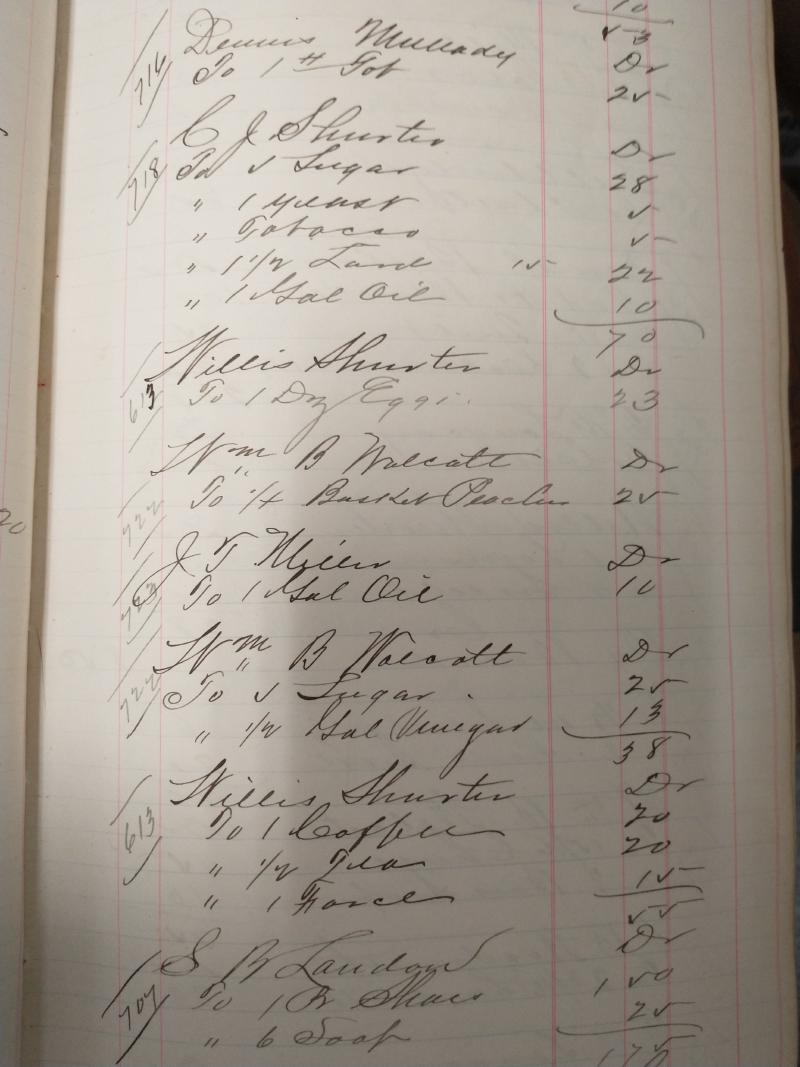 10
53
Dennis Mullady Dr
716 To 1 # Tob 25
C J Shurter Dr
718 To 5 Sugar 28
" 1 yeast 5
" Tobacco 5
" 1 1/2 Lard 15 22
" 1 Gal Oil 10
70
Willis Shurter Dr
613 To 1 Doz Eggs 23
Wm B Wolcott Dr
722 To 1/4 Basket Peaches 25
J T Miller Dr
To 1 Gal Oil 10
Wm B Wolcott Dr
722 To 5 Sugar 25
" 1/2 Gal Vinegar 13
38
Willis Shurter Dr
613 To 1 Coffee 20
" 1/2 Tea 20
" 1 Force 15
55
S B Landow Dr
707 To 1 Pr Shoes 1 50
" 6 Soap 25
1 75
20